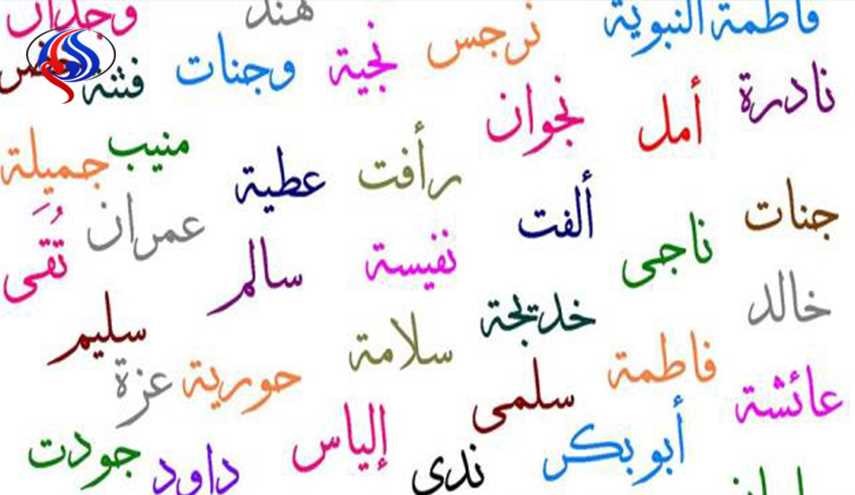 فاطمة النبوية
هند
وجدان
نرجس
نجية
وجنات
فتنة
نادرة
أمل
نجوان
رأفت
عطية
منيب
جميلة
جنات
ألفت
عمران
تُقَى
ناجى
نفيسة
سالم
خالد
خديجة
سليم
سلامة
فاطمة
حورية
عزة
عائشة
سلمى
أبو بكر
إلياس
جودت
ندى
داود